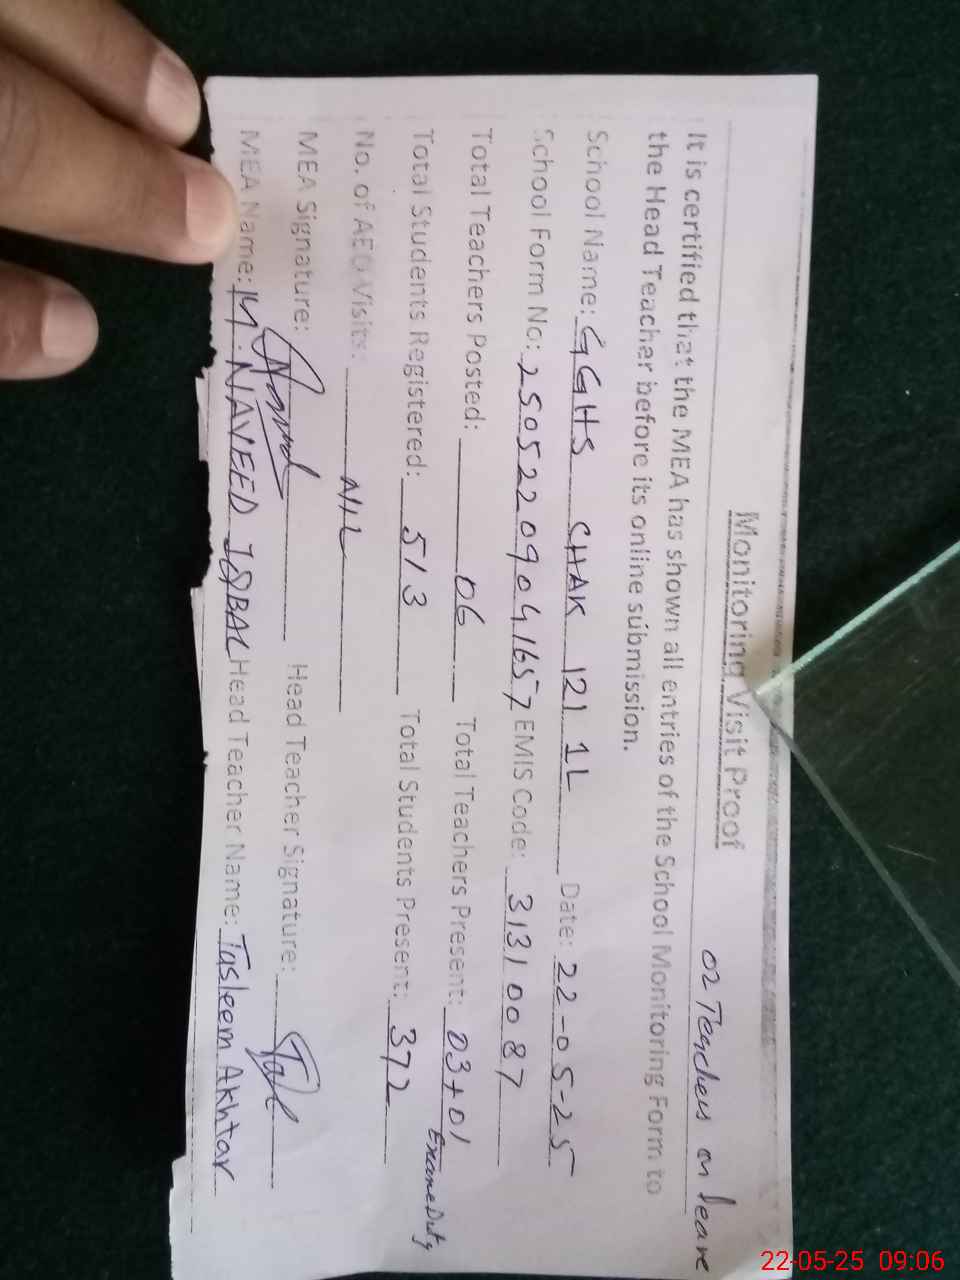 Monitoring Visit Proof
02 Teachers on leave
It is certified that the MEA has shown all entries of the School Monitoring Form to
the Head Teacher before its online submission.
School Name: GGHS CHAK 121 1L Date: 22-05-25
School Form No: 25052209041657 EMIS Code: 31310087
Total Teachers Posted: 06 Total Teachers Present: 03+01 Exame Duty
Total Students Registered: 513 Total Students Present: 372
No. of AEO Visits: NIL
MEA Signature: Head Teacher Signature:
MEA Name: M. NAVEED IQBAL Head Teacher Name: Tasleem Akhtar
22-05-25 09:06